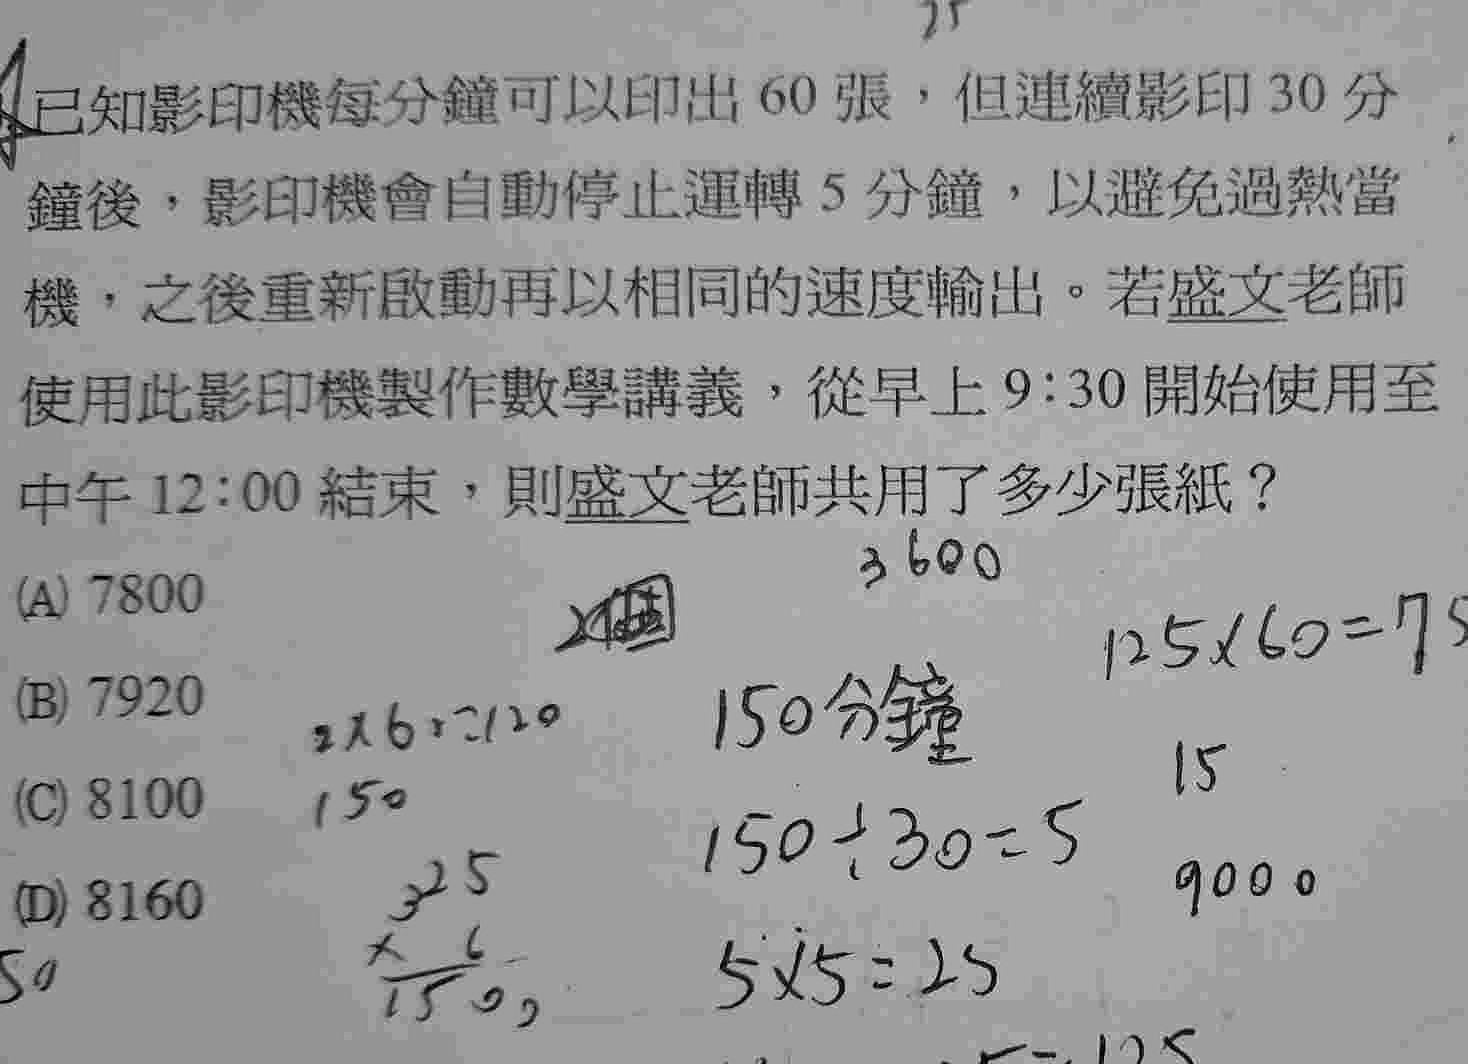 25
已知影印機每分鐘可以印出 60 張，但連續影印 30 分
鐘後，影印機會自動停止運轉 5 分鐘，以避免過熱當
機，之後重新啟動再以相同的速度輸出。若盛文老師
使用此影印機製作數學講義，從早上 9:30 開始使用至
中午 12:00 結束，則盛文老師共用了多少張紙？
3600
(A) 7800
125×60=75
(B) 7920
2×60=120
150分鐘
15
(C) 8100
150
150÷30=5
9000
(D) 8160
325
× 6
1500
5×5=25
50
5=125